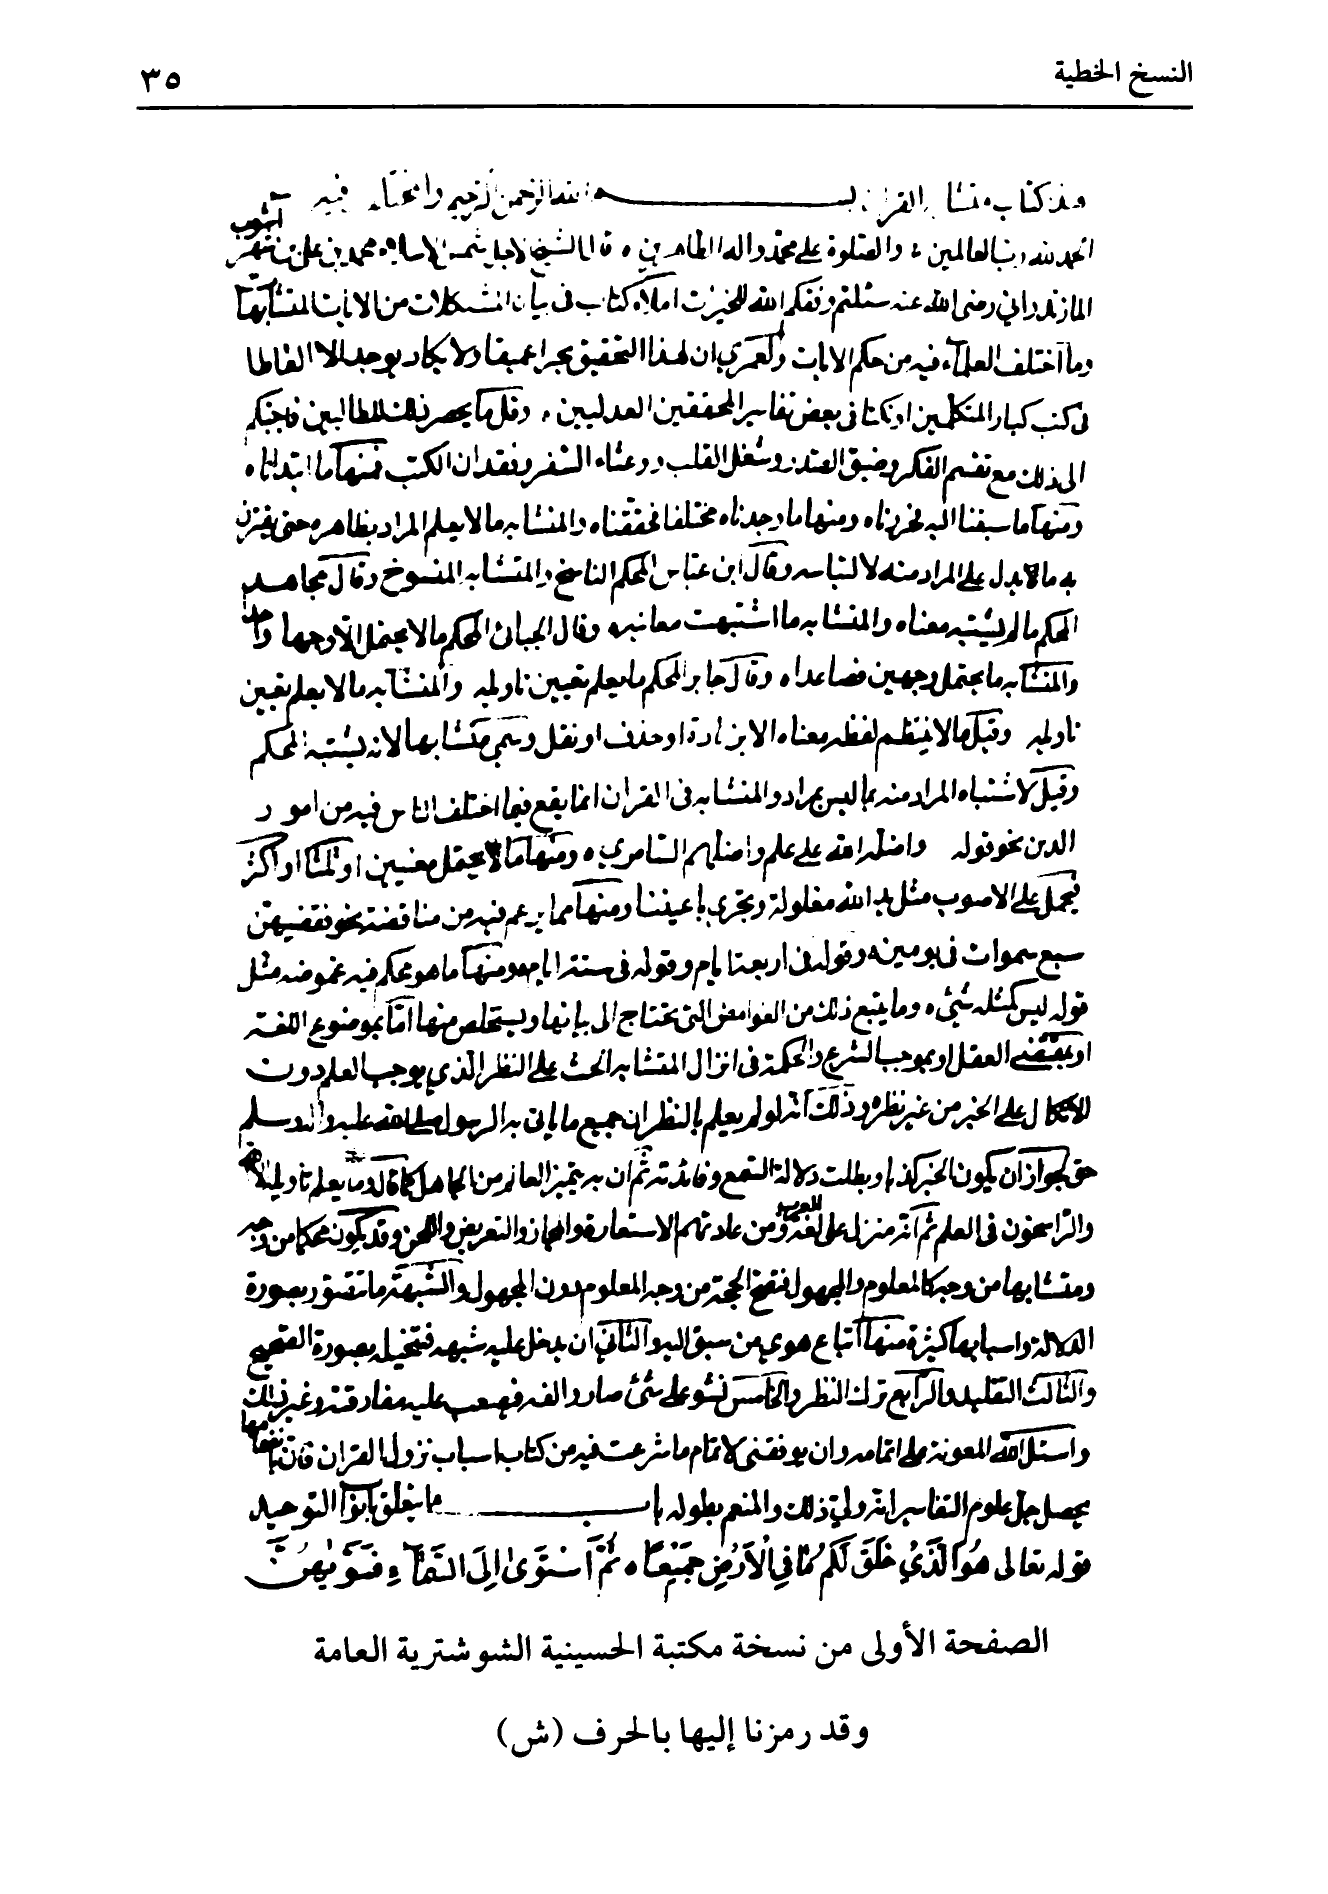 النسخ الخطية
٣٥
هذا كتاب متشابه القران بسم الله الرحمن الرحيم فيه
الحمد لله رب العالمين والصلوة على محمد واله الطاهرين ه قال الشيخ الاجل شمس الاسلام محمد بن علي بن شهر آشوب
المازندراني رضي الله عنه سئلتم وفقكم الله للخيرات املاء كتاب في بيان المشكلات من الايات المتشابهات
وما اختلف العلماء فيه من حكم الايات ولعمري ان لهذا التحقيق بحرا عميقا ولا يكاد يوجد الا الفاظا
في كتب كبار المتكلمين او نكتا في بعض تفاسير المحققين العدليين وقل ما يحصر ذلك للطالبين فاجبتكم
الى ذلك مع تقسم الفكر وضيق الصدر وشغل القلب ووعثاء السفر وفقدان الكتب فمنها ما ابتداناه
ومنها ما سبقنا اليه فحررناه ومنها ما وجدناه مختلفا فحققناه والمتشابه ما لا يعلم المراد بظاهره حتى يقترن
به ما يدل على المراد منه لالتباسه وقال ابن عباس المحكم الناسخ والمتشابه المنسوخ وقال مجاهد
المحكم ما لم يشتبه معناه والمتشابه ما اشتبهت معانيه وقال الجبائى المحكم ما لا يحتمل الا وجها واحدا
والمتشابه ما يحتمل وجهين فصاعدا ه وقال جابر المحكم ما يعلم تعيين تاويله والمتشابه ما لا يعلم تعيين
تاويله وقيل ما لا ينتظم لفظه معناه الا بزيادة او حذف او نقل وسمى متشابها لانه يشتبه المحكم
وقيل لاشتباه المراد منه بما ليس بمراد والمتشابه فى القران انما يقع فيما اختلف الناس فيه من امور
الدين نحو قوله واضله الله على علم واضلهم السامري ه ومنها ما يحتمل معنيين او ثلثا او اكثر
فيحمل على الاصوب مثل يد الله مغلولة وتجري باعيننا ومنها مما يزعم فيه من مناقضة نحو فقضيهن
سبع سموات في يومين وقوله في اربعة ايام وقوله فى ستة ايام ومنها ما هو محكم فيه غموضه مثل
قوله ليس كمثله شئ ه وما يتبع ذلك من الغوامض التي يحتاج الى بيانها ويستخلص منها اما بموضوع اللغة
او بمقتضى العقل او بموجب الشرع والحكمة فى انزال المتشابه الحث على النظر الذي يوجب العلم دون
الاتكال على الخبر من غير نظره وذلك انه لو لم يعلم بالنظر ان جميع ما ياتي به الرسول صلى الله عليه واله وسلم
حق لجواز ان يكون الخبر كذبا وبطلت دلالة السمع وفائدته ثم ان به يتميز العالم من الجاهل كما قال وما يعلم تاويله الا الله
والراسخون فى العلم ثم انه منزل على لغة العرب ومن عادتهم الاستعارة والمجاز والتعريض واللحن وقد يكون محكما من وجه
ومتشابها من وجه كالمعلوم والمجهول فتصح الحجة من وجه المعلوم دون المجهول والشبهة ما تتصور بصورة
الدلالة واسبابها كثيرة منها اتباع هوى من سبق اليه والثاني ان يدخل عليه شبهه فتخيله بصورة الصحيح
والثالث التقليد والرابع ترك النظر والخامس نشو على شئ صار والفه فيصعب عليه مفارقته وغير ذلك
واسئل الله المعونة على اتمامه وان يوفقني لاتمام ما شرعت فيه من كتاب اسباب نزول القران فان بانضمامهما
يحصل جل علوم التفاسير انه ولي ذلك والمنعم بطوله باب ما يتعلق بابواب التوحيد
قوله تعالى هُوَ الَّذِي خَلَقَ لَكُم مَّا فِي الْأَرْضِ جَمِيعًا ه ثُمَّ اسْتَوَى إِلَى السَّمَاءِ فَسَوّٰيهُنَّ
الصفحة الأولى من نسخة مكتبة الحسينية الشوشترية العامة
وقد رمزنا إليها بالحرف (ش)